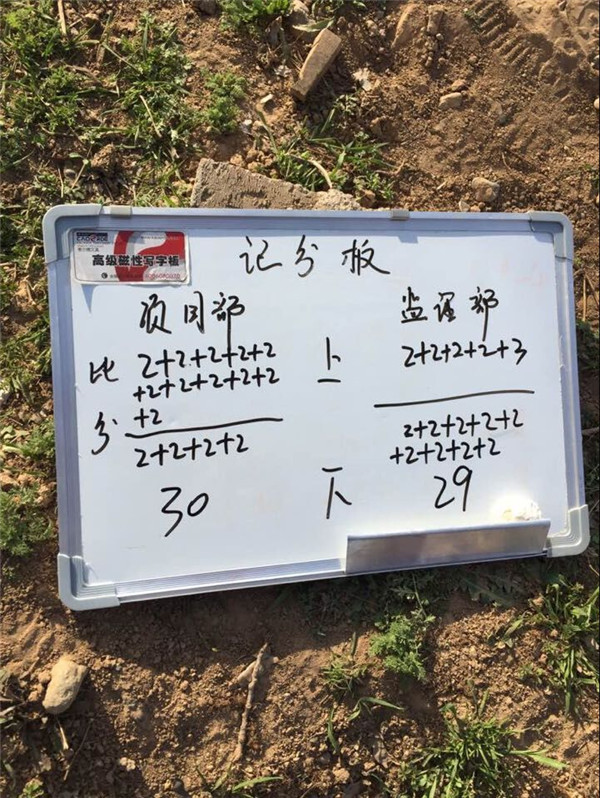 高级磁性写字板
记分板
项目部 监理部
比分 2+2+2+2+2 上 2+2+2+2+3
+2+2+2+2+2+2
+2
2+2+2+2 下 2+2+2+2+2
+2+2+2+2
30 29